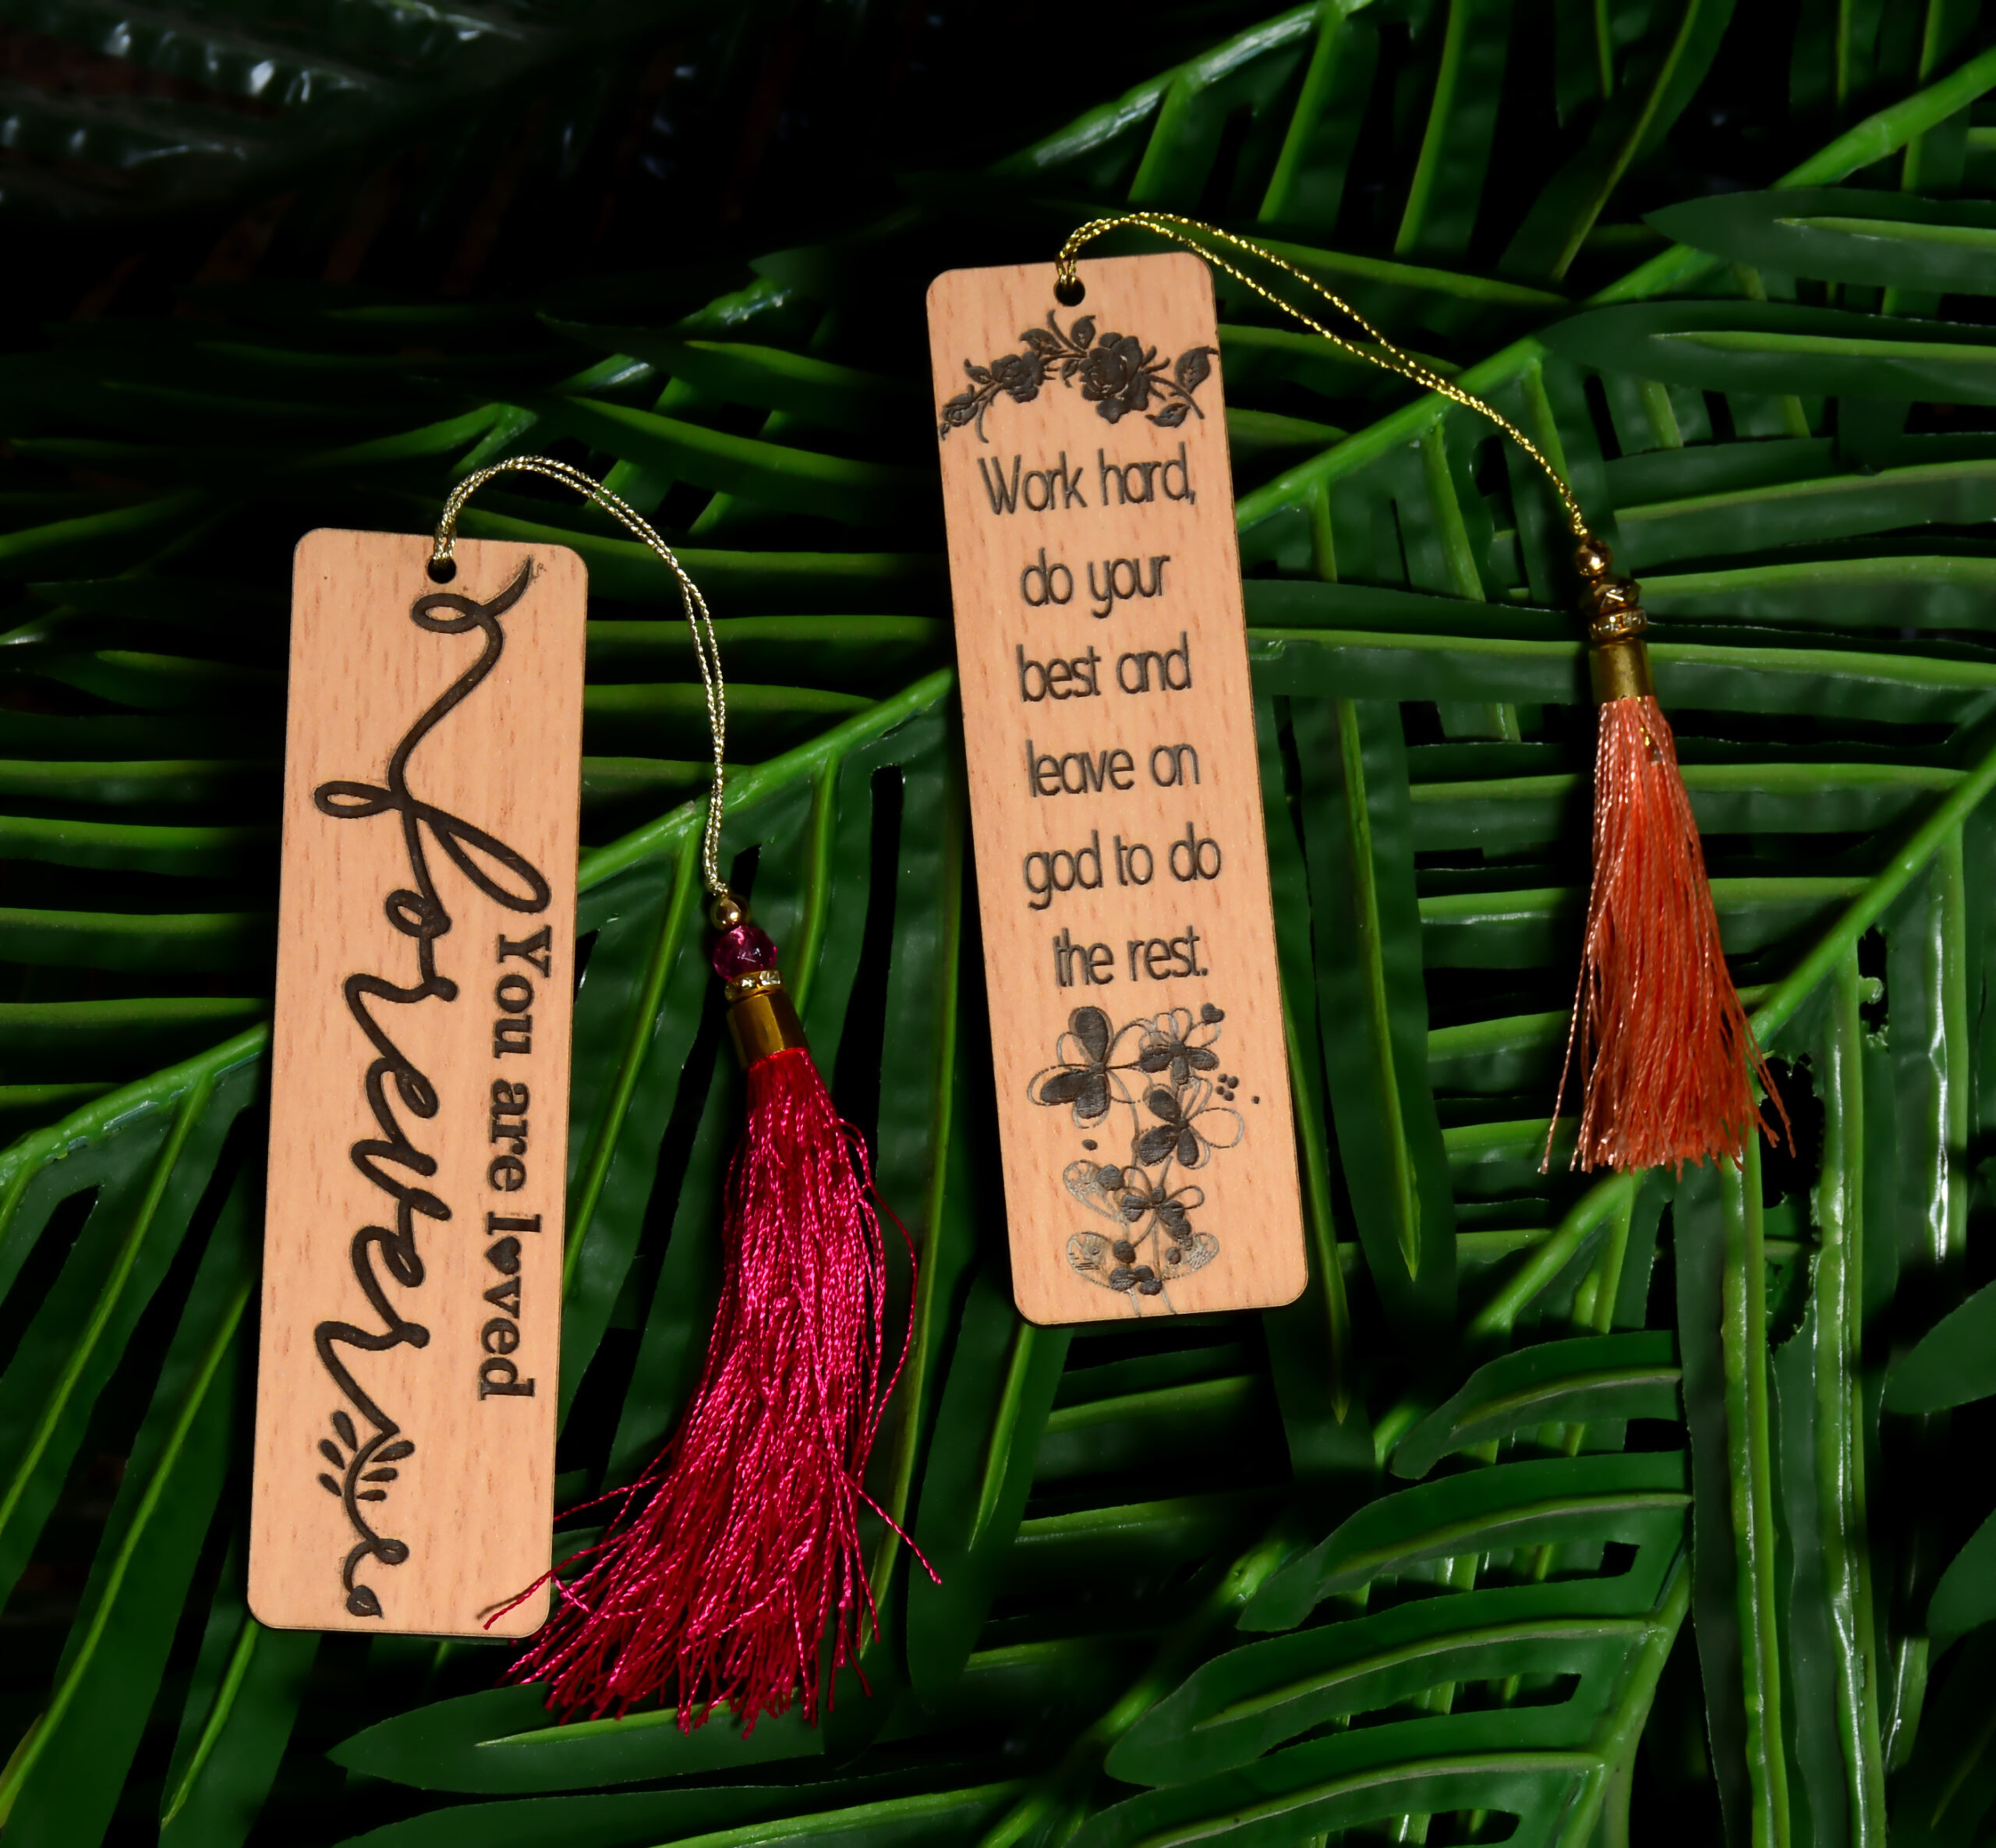 You are loved
forever
Work hard,
do your
best and
leave on
god to do
the rest.